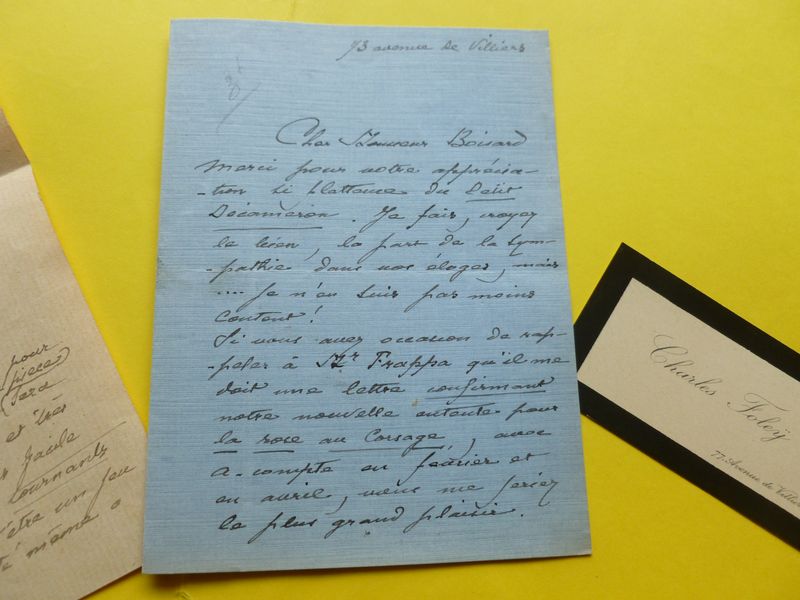 73 avenue de Villiers
Cher Monsieur Boisard
Merci pour votre apprécia-
-tion si flatteuse du Petit
Décaméron. Je fais, croyez
le bien, la part de la sym-
-pathie dans vos éloges, mais
.... Je n'en suis pas moins
content!
Si vous avez occasion de rap-
-peler à Mr Frappa qu'il me
doit une lettre confirmant
notre nouvelle entente pour
la rose au Corsage, avec
a-compte en février et
en avril, vous me feriez
le plus grand plaisir.
pour
pièces
sera
et très
facile
tournants
être un peu
même
Charles Foleÿ
77 Avenue de Villiers